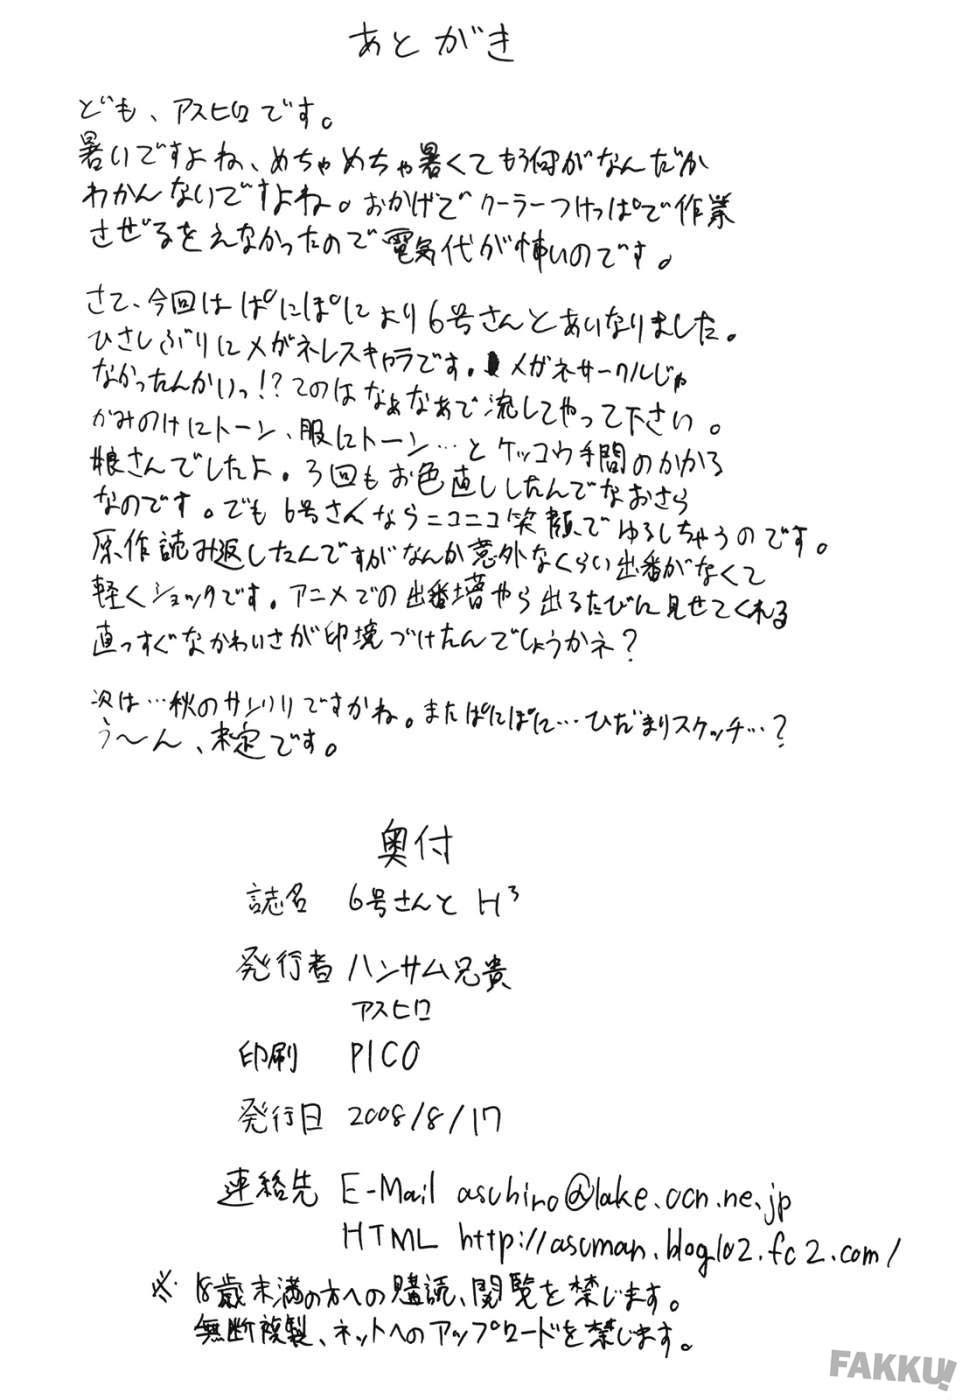 あとがき
ども、アスヒロです。
暑いですよね、めちゃめちゃ暑くてもう何がなんだか
わかんないですよね。おかげでクーラーつけっぱで作業
させざるをえなかったので電気代が怖いのです。
さて、今回はぱにぽにより6号さんとあいなりました。
ひさしぶりにメガネレスキャラです。メガネサークルじゃ
なかったんかいっ!?てのはなぁなぁで流してやって下さい。
かみのけにトーン、服にトーン…とケッコウ手間のかかる
娘さんでしたよ。3回もお色直ししたんでなおさら
なのです。でも6号さんならニコニコ笑顔でゆるしちゃうのです。
原作読み返したんですがなんか意外なくらい出番がなくて
軽くショックです。アニメでの出番増やら出るたびに見せてくれる
直っすぐなかわいさが印境づけたんでしょうかネ?
次は…秋のサンクリですかね。またぱにぽに…ひだまりスケッチ…?
う〜ん、未定です。
奥付
誌名 6号さんと H³
発行者 ハンサム兄貴
アスヒロ
印刷 PICO
発行日 2008/8/17
連絡先 E-Mail asuhiro@lake.ocn.ne.jp
HTML http://asuman.blog102.fc2.com/
※ 18歳未満の方への購読、閲覧を禁じます。
無断複製、ネットへのアップロードを禁じます。
FAKKU!